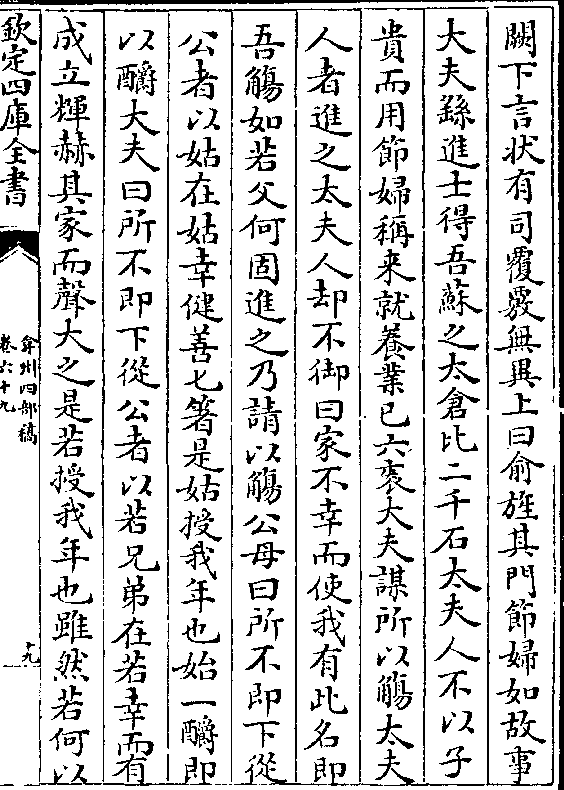 闕下言狀有司覆覈無異上曰俞旌其門節婦如故事
大夫繇進士得吾蘇之太倉比二千石太夫人不以子
貴而用節婦稱来就養業已六袠大夫謀所以觴太夫
人者進之太夫人却不御曰家不幸而使我有此名即
吾觴如若父何固進之乃請以觴公母曰所不即下從
公者以姑在姑幸健善七箸是姑授我年也始一釂即
以釂大夫曰所不即下從公者以若兄弟在若幸而有
成立輝赫其家而聲大之是若授我年也雖然若何以
欽定四庫全書
弇州四部稿
卷六十九
十九